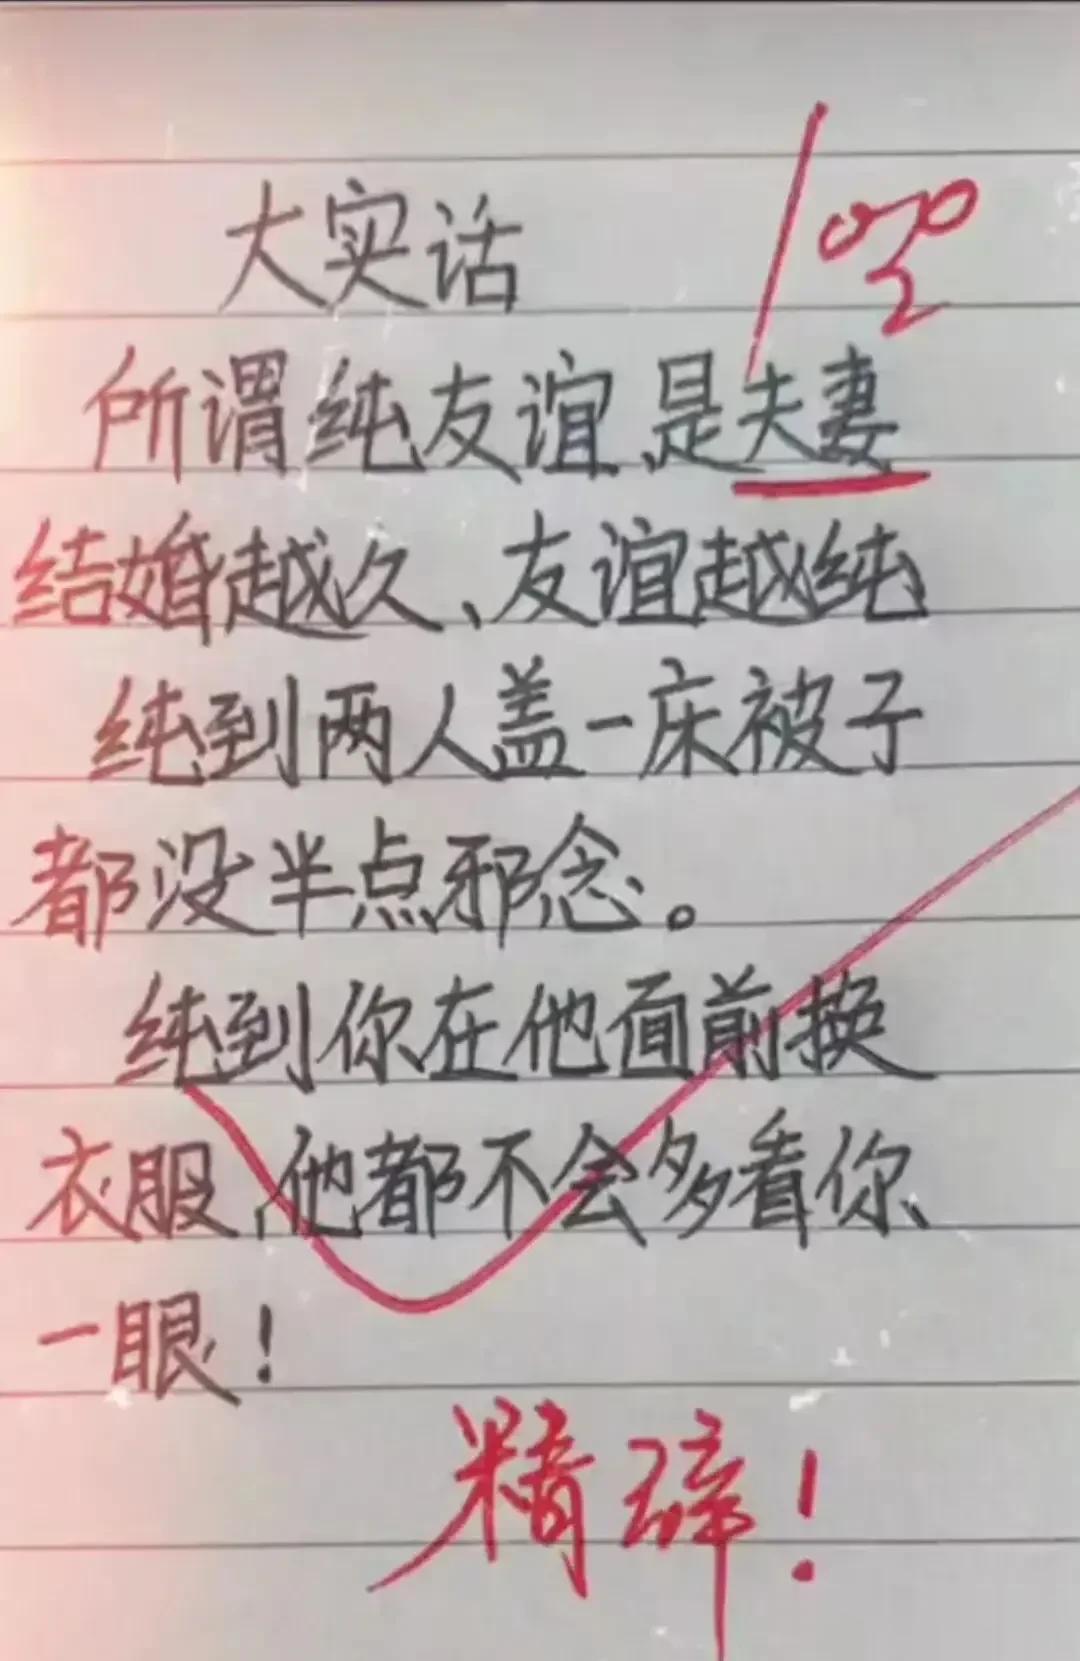 大实话
100
所谓纯友谊、是夫妻
结婚越久、友谊越纯
纯到两人盖一床被子
都没半点邪念。
纯到你在他面前换
衣服、他都不会多看你
一眼！
精辟！